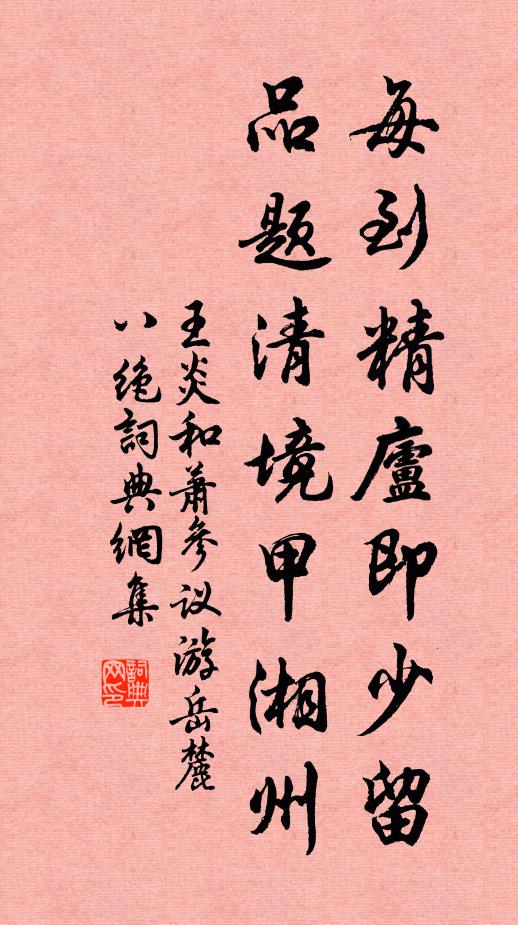 每到精廬即少留
品题清境甲湘州
王炎和萧參议游岳麓
八絶詞典網集
詞典网印